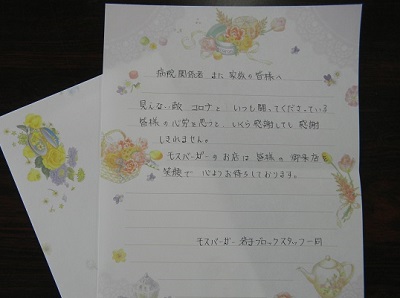 病院関係者 また 家族の皆様へ
見えない敵 コロナと いつも闘ってくださっている
皆様の心労を思うと いくら感謝しても 感謝
しきれません。
モスバーガーのお店は 皆様の 御来店を
笑顔で 心よりお待ちしております。
モスバーガー ブロックスタッフ一同